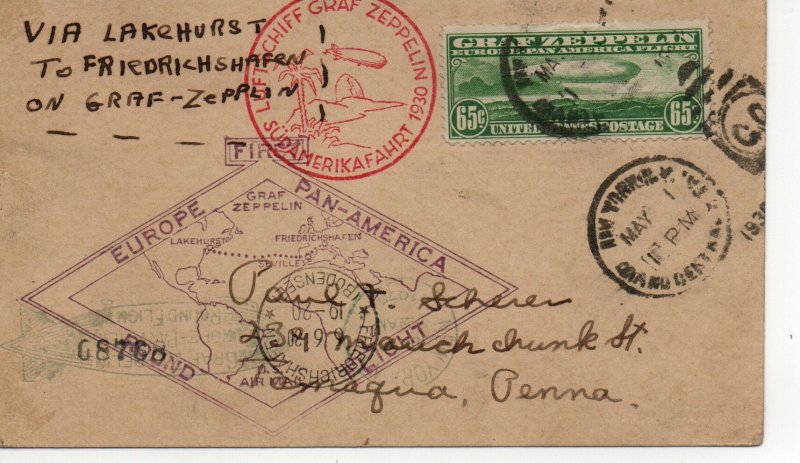 VIA LAKEHURST
TO FRIEDRICHSHAFEN
ON GRAF-ZEPPLIN
LUFTSCHIFF GRAF ZEPPELIN 1930
SÜDAMERIKAFAHRT
GRAF ZEPPELIN
EUROPE-PAN-AMERICA FLIGHT
65c 65c
UNITED STATES POSTAGE
NEW YORK
MAY 1
PM
GRAND CENT
1930
FIRST
EUROPE PAN-AMERICA
ROUND FLIGHT
GRAF
ZEPPELIN
LAKEHURST FRIEDRICHSHAFEN
SEVILLE
AIR MAIL
FRIEDRICHSHAFEN
(BODENSEE)
G8766
Paul F. Scherer
234 Mauch chunk St.
Tamaqua, Penna.